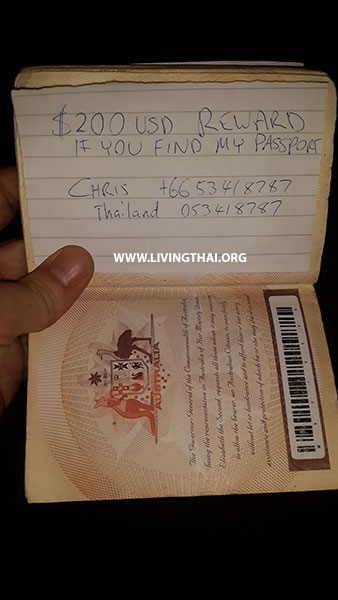 $200 USD REWARD
IF YOU FIND MY PASSPORT
CHRIS +66 53418787
Thailand 053418787
WWW.LIVINGTHAI.ORG
AUSTRALIA
The Governor-General of the Commonwealth of Australia,
being the representative in Australia of Her Majesty Queen
Elizabeth the Second, requests all those whom it may concern
to allow the bearer, an Australian Citizen, to pass freely
without let or hindrance and to afford him or her every
assistance and protection of which he or she may stand in need.